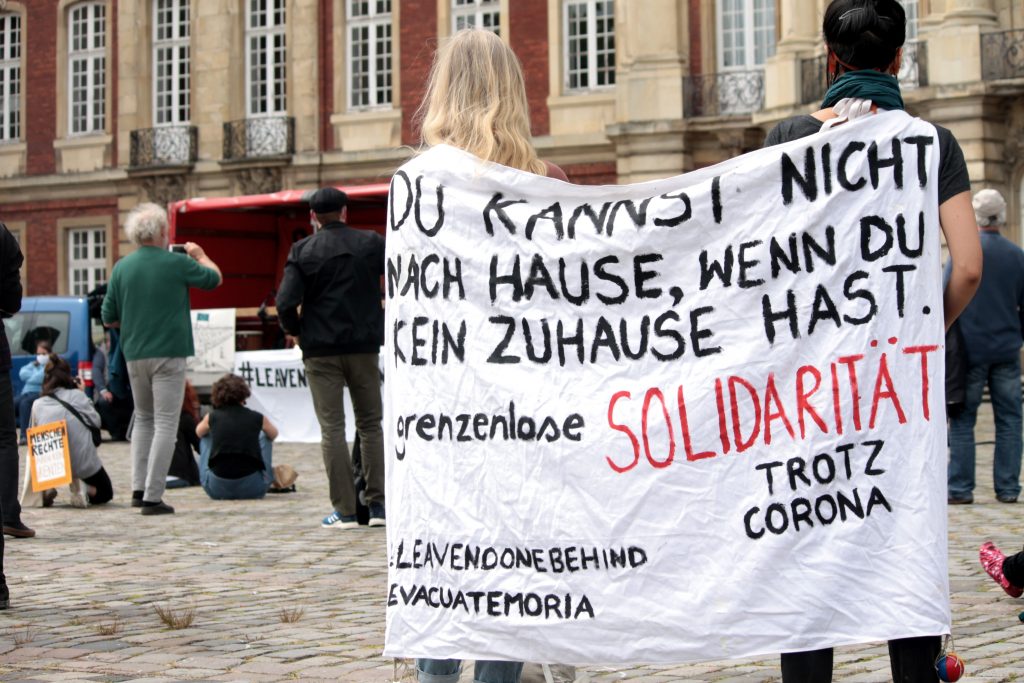 DU KANNST NICHT
NACH HAUSE, WENN DU
KEIN ZUHAUSE HAST.
grenzenlose SOLIDARITÄT
TROTZ
CORONA
LEAVENOONEBEHIND
EVACUATEMORIA
#LEAVEN
MENSCHEN
RECHTE